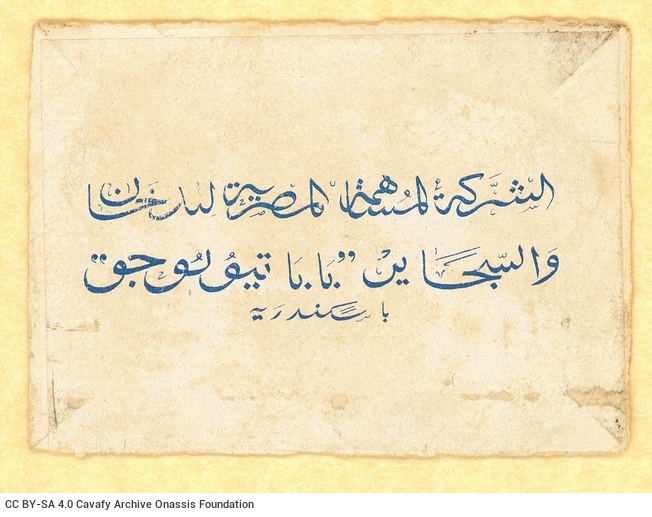 الشَّركة المُساهمة المصرية للدخان
والسَّجاير "بابا تيولوجو"
باسكندرية
CC BY-SA 4.0 Cavafy Archive Onassis Foundation